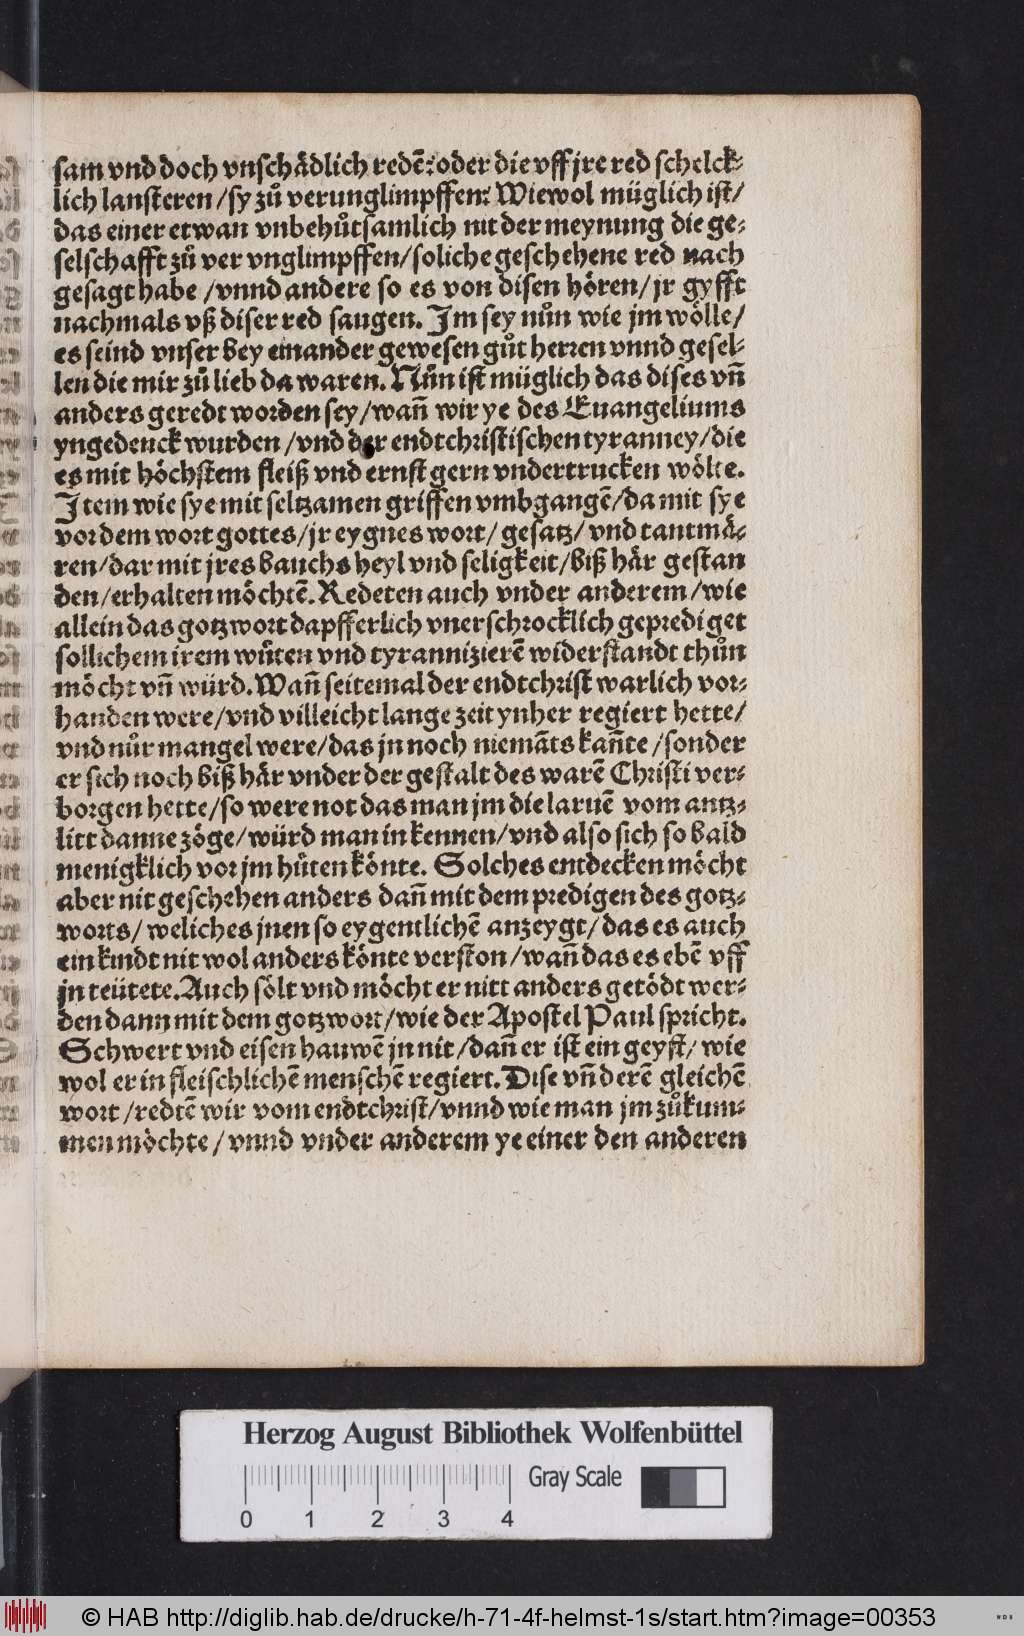 sam vnd doch vnschädlich redē: oder die vff jre red schelck⸗
lich lansteren / sy zů verunglimpffen: Wiewol müglich ist /
das einer etwan vnbehůtsamlich nit der meynung die ge⸗
selschafft zů ver vnglimpffen / soliche geschehene red nach
gesagt habe / vnnd andere so es von disen hören / jr gyfft
nachmals vß diser red saugen. Im sey nůn wie jm wölle /
es seind vnser bey einander gewesen gůt herren vnnd gesel⸗
len die mir zů lieb da waren. Nůn ist müglich das dises vn̄
anders geredt worden sey / wan̄ wir ye des Euangeliums
yngedenck wurden / vnd der endtchristischen tyranney / die
es mit höchstem fleiß vnd ernst gern vndertrucken wölte.
Item wie sye mit seltzamen griffen vmbgangē / da mit sye
vor dem wort gottes / jr eygnes wort / gesatz / vnd tantmä⸗
ren / dar mit jres bauchs heyl vnd seligkeit / biß här gestan
den / erhalten möchtē. Redeten auch vnder anderem / wie
allein das gotzwort dapfferlich vnerschrocklich geprediget
sollichem irem wüten vnd tyrannizierē widerstandt thůn
möcht vn̄ würd. Wan̄ seitemal der endtchrist warlich vor⸗
handen were / vnd villeicht lange zeit ynher regiert hette /
vnd nůr mangel were / das jn noch niemāts kan̄te / sonder
er sich noch biß här vnder der gestalt des warē Christi ver⸗
borgen hette / so were not das man jm die laruē vom antz⸗
litt danne zöge / würd man in kennen / vnd also sich so bald
menigklich vor jm hüten könte. Solches entdecken möcht
aber nit geschehen anders dan̄ mit dem predigen des gotz⸗
worts / weliches jnen so eygentlichē anzeygt / das es auch
ein kindt nit wol anders könte verston / wan̄ das es ebē vff
jn teütete. Auch sölt vnd möcht er nitt anders getödt wer⸗
den dann mit dem gotzwort / wie der Apostel Paul spricht.
Schwert vnd eisen hauwē jn nit / dan̄ er ist ein geyst / wie
wol er in fleischlichē menschē regiert. Dise vn̄ derē gleichē
wort / redtē wir vom endtchrist / vnnd wie man jm zůkum⸗
men möchte / vnnd vnder anderem ye einer den anderen
Herzog August Bibliothek Wolfenbüttel
Gray Scale
0 1 2 3 4
© HAB http://diglib.hab.de/drucke/h-71-4f-helmst-1s/start.htm?image=00353